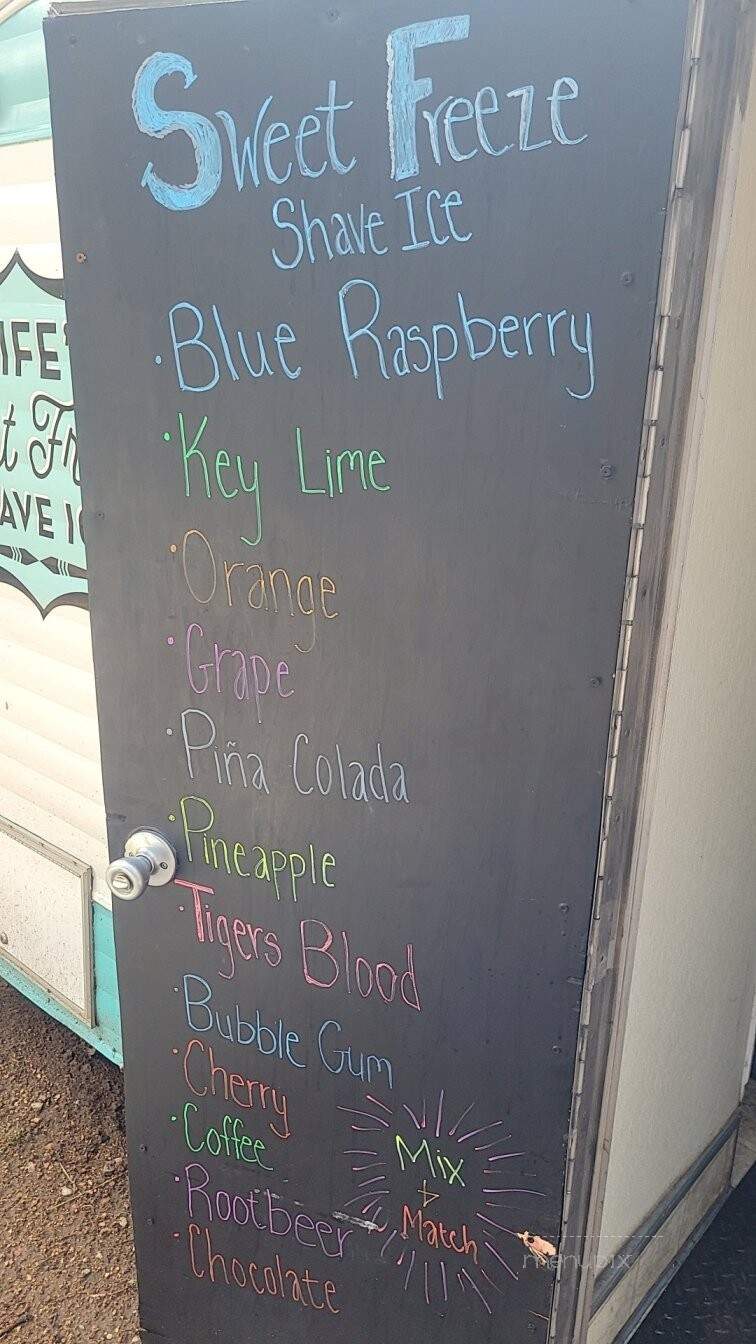 Sweet Freeze
Shave Ice
· Blue Raspberry
· Key Lime
· Orange
· Grape
· Piña Colada
· Pineapple
· Tigers Blood
· Bubble Gum
· Cherry
· Coffee
· Rootbeer
· Chocolate
Mix
+
Match
IFE'
t Fr
AVE I
menupix